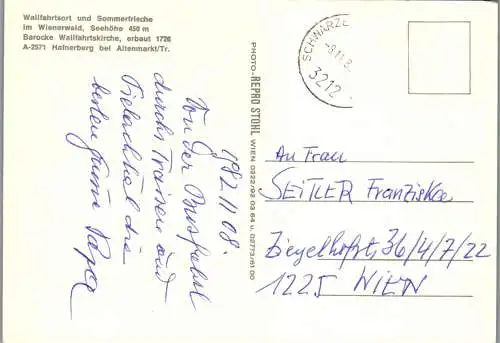 Wallfahrtsort und Sommerfrische
im Wienerwald, Seehöhe 450 m
Barocke Wallfahrtskirche, erbaut 1726
A-2571 Hafnerberg bei Altenmarkt/Tr.
1982.11.08.
Von der Busfahrt
durchs Traisen und
Pielachtal die
besten Grüße Papa
PHOTO-REPRO STOHL WIEN 0222/92 03 64 u. 02773/61 00
SCHWARZE
-8.11.8
3212
An Frau
SEITLER Franziska
Ziegelhofstr, 36/4/7/22
1225 WIEN